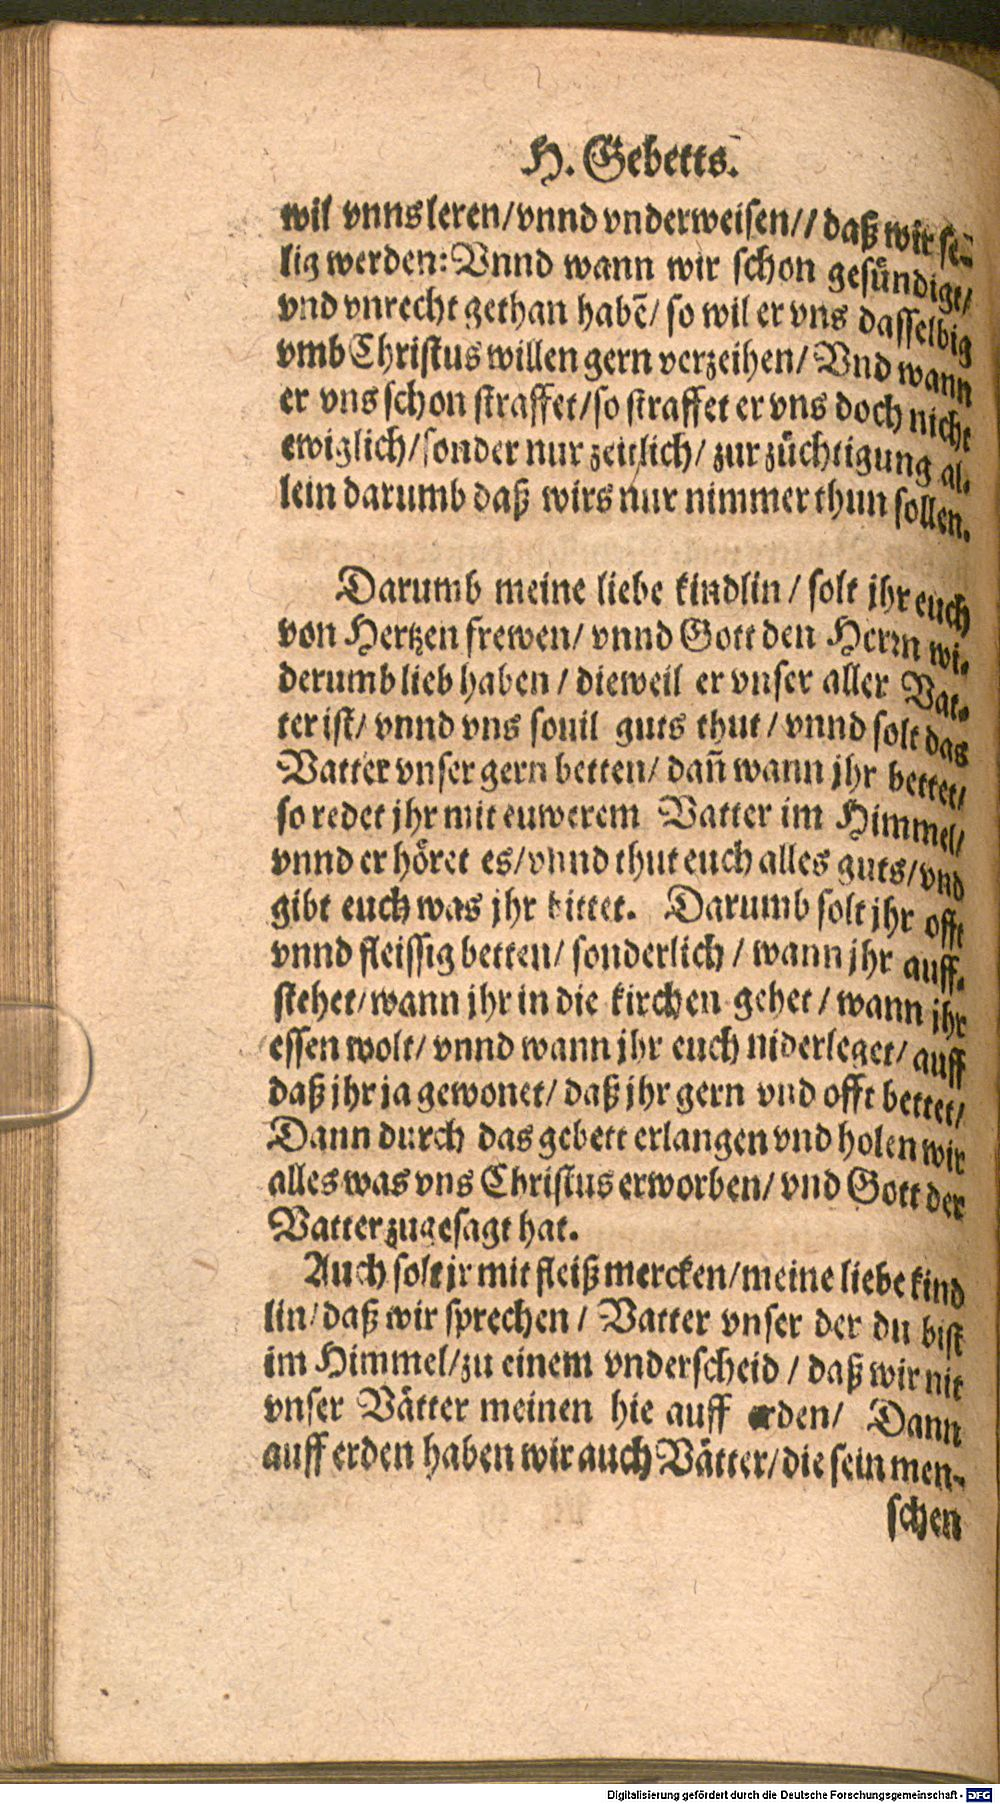 H. Gebetts.
wil vnns leren/vnnd vnderweisen// daß wir se-
lig werden: Vnnd wann wir schon gesündigt/
vnd vnrecht gethan habē/ so wil er vns dasselbig
vmb Christus willen gern verzeihen/ Vnd wann
er vns schon straffet/so straffet er vns doch nicht
ewiglich/sonder nur zeitlich/ zur züchtigung al-
lein darumb daß wirs nur nimmer thun sollen.
Darumb meine liebe kindlin / solt jhr euch
von Hertzen frewen/ vnnd Gott den Herrn wi-
derumb lieb haben / dieweil er vnser aller Vat-
ter ist/ vnnd vns souil guts thut / vnnd solt das
Vatter vnser gern betten/ dañ wann jhr bettet/
so redet jhr mit euwerem Vatter im Himmel/
vnnd er höret es/vnnd thut euch alles guts/vnd
gibt euch was jhr bittet. Darumb solt jhr offt
vnnd fleissig betten/ sonderlich / wann jhr auff-
stehet/wann jhr in die kirchen gehet / wann jhr
essen wolt/ vnnd wann jhr euch niderleget/ auff
daß jhr ja gewonet/ daß jhr gern vnd offt bettet/
Dann durch das gebett erlangen vnd holen wir
alles was vns Christus erworben/ vnd Gott der
Vatter zugesagt hat.
Auch solt jr mit fleiß mercken/meine liebe kind
lin/daß wir sprechen / Vatter vnser der du bist
im Himmel/zu einem vnderscheid / daß wir nit
vnser Vätter meinen hie auff erden/ Dann
auff erden haben wir auch Vätter/die sein men-
schen
Digitalisierung gefördert durch die Deutsche Forschungsgemeinschaft - DFG